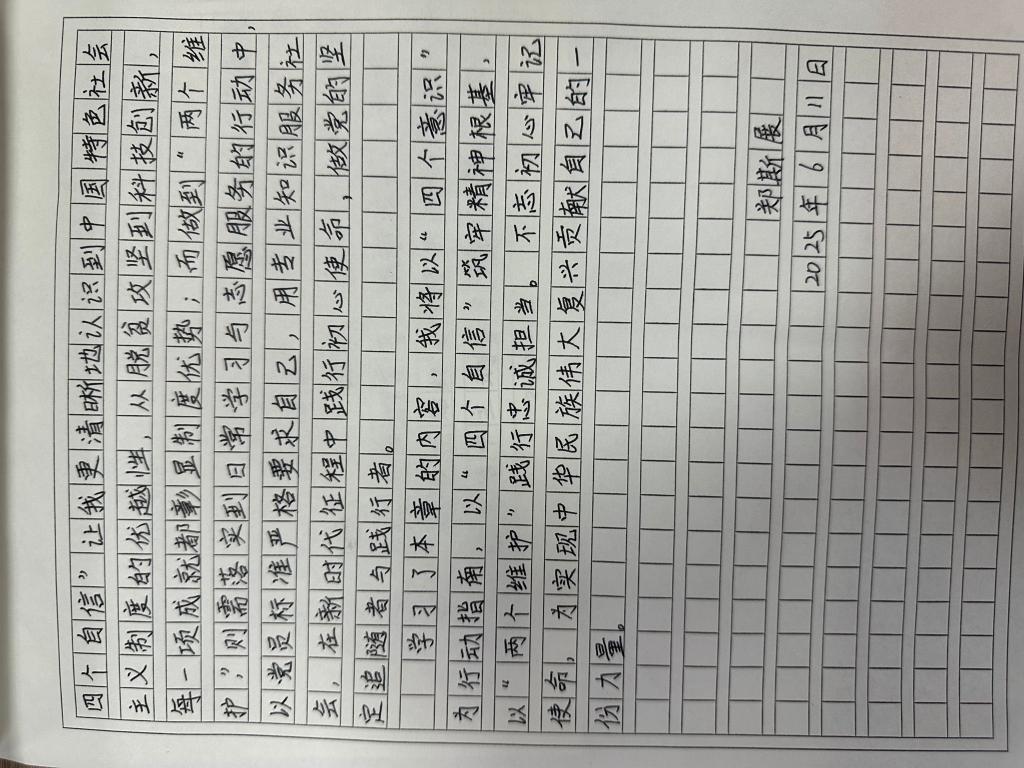 四个自信”让我更清晰地认识到中国特色社会
主义制度的优越性，从脱贫攻坚到科技创新，
每一项成就都彰显制度优势；而做到“两个维
护，”则需落实到日常学习与志愿服务的行动中，
以党员标准严格要求自己，用专业知识服务社
会，在新时代征程中践行初心使命，做党的坚
定追随者与践行者。
学习了本章的内容，我将以“四个意识”
为行动指南，以“四个自信”筑牢精神根基，
以“两个维护”践行忠诚担当。不忘初心牢记
使命，为实现中华民族伟大复兴贡献自己的一
份力量。
郑斯展
2025年6月11日